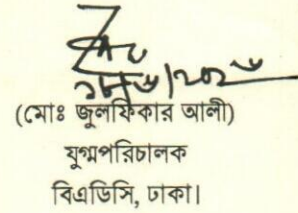 (মোঃ জুলফিকার আলী)
যুগ্মপরিচালক
বিএডিসি, ঢাকা।